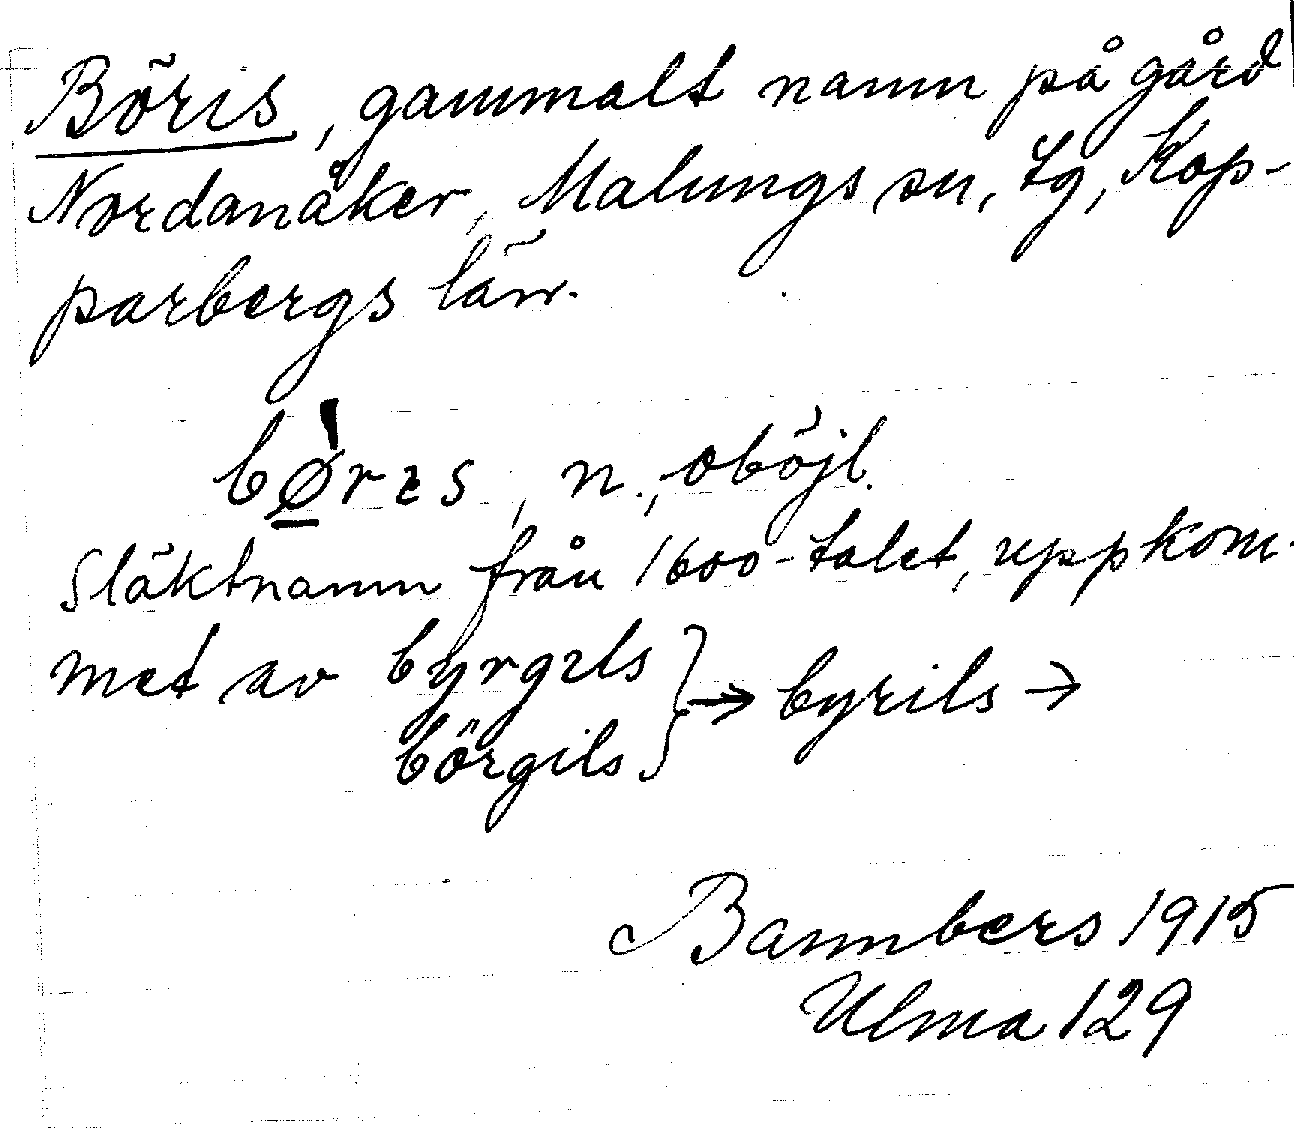 Böris, gammalt namn på gård
Nordanåker, Malungs sn, tg, Kop-
parbergs län.
bø̲'rɪs, n., oböjl.
Släktnamn från 1600-talet, uppkom-
met av byrgɪls } → byrils →
börgils
Bannbers 1915
Ulma 129